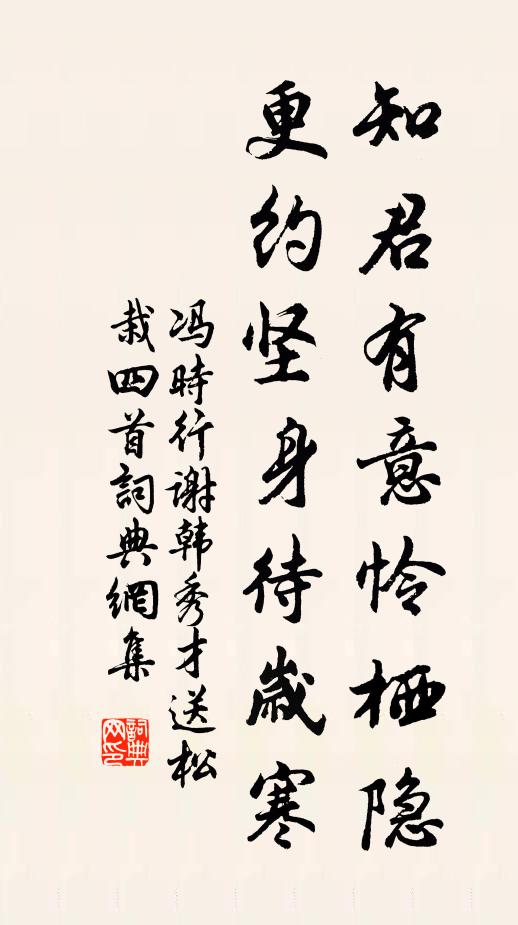 知君有意怜栖隐
更约坚身待歲寒
冯時行谢韩秀才送松
栽四首詞典網集
詞典
网印